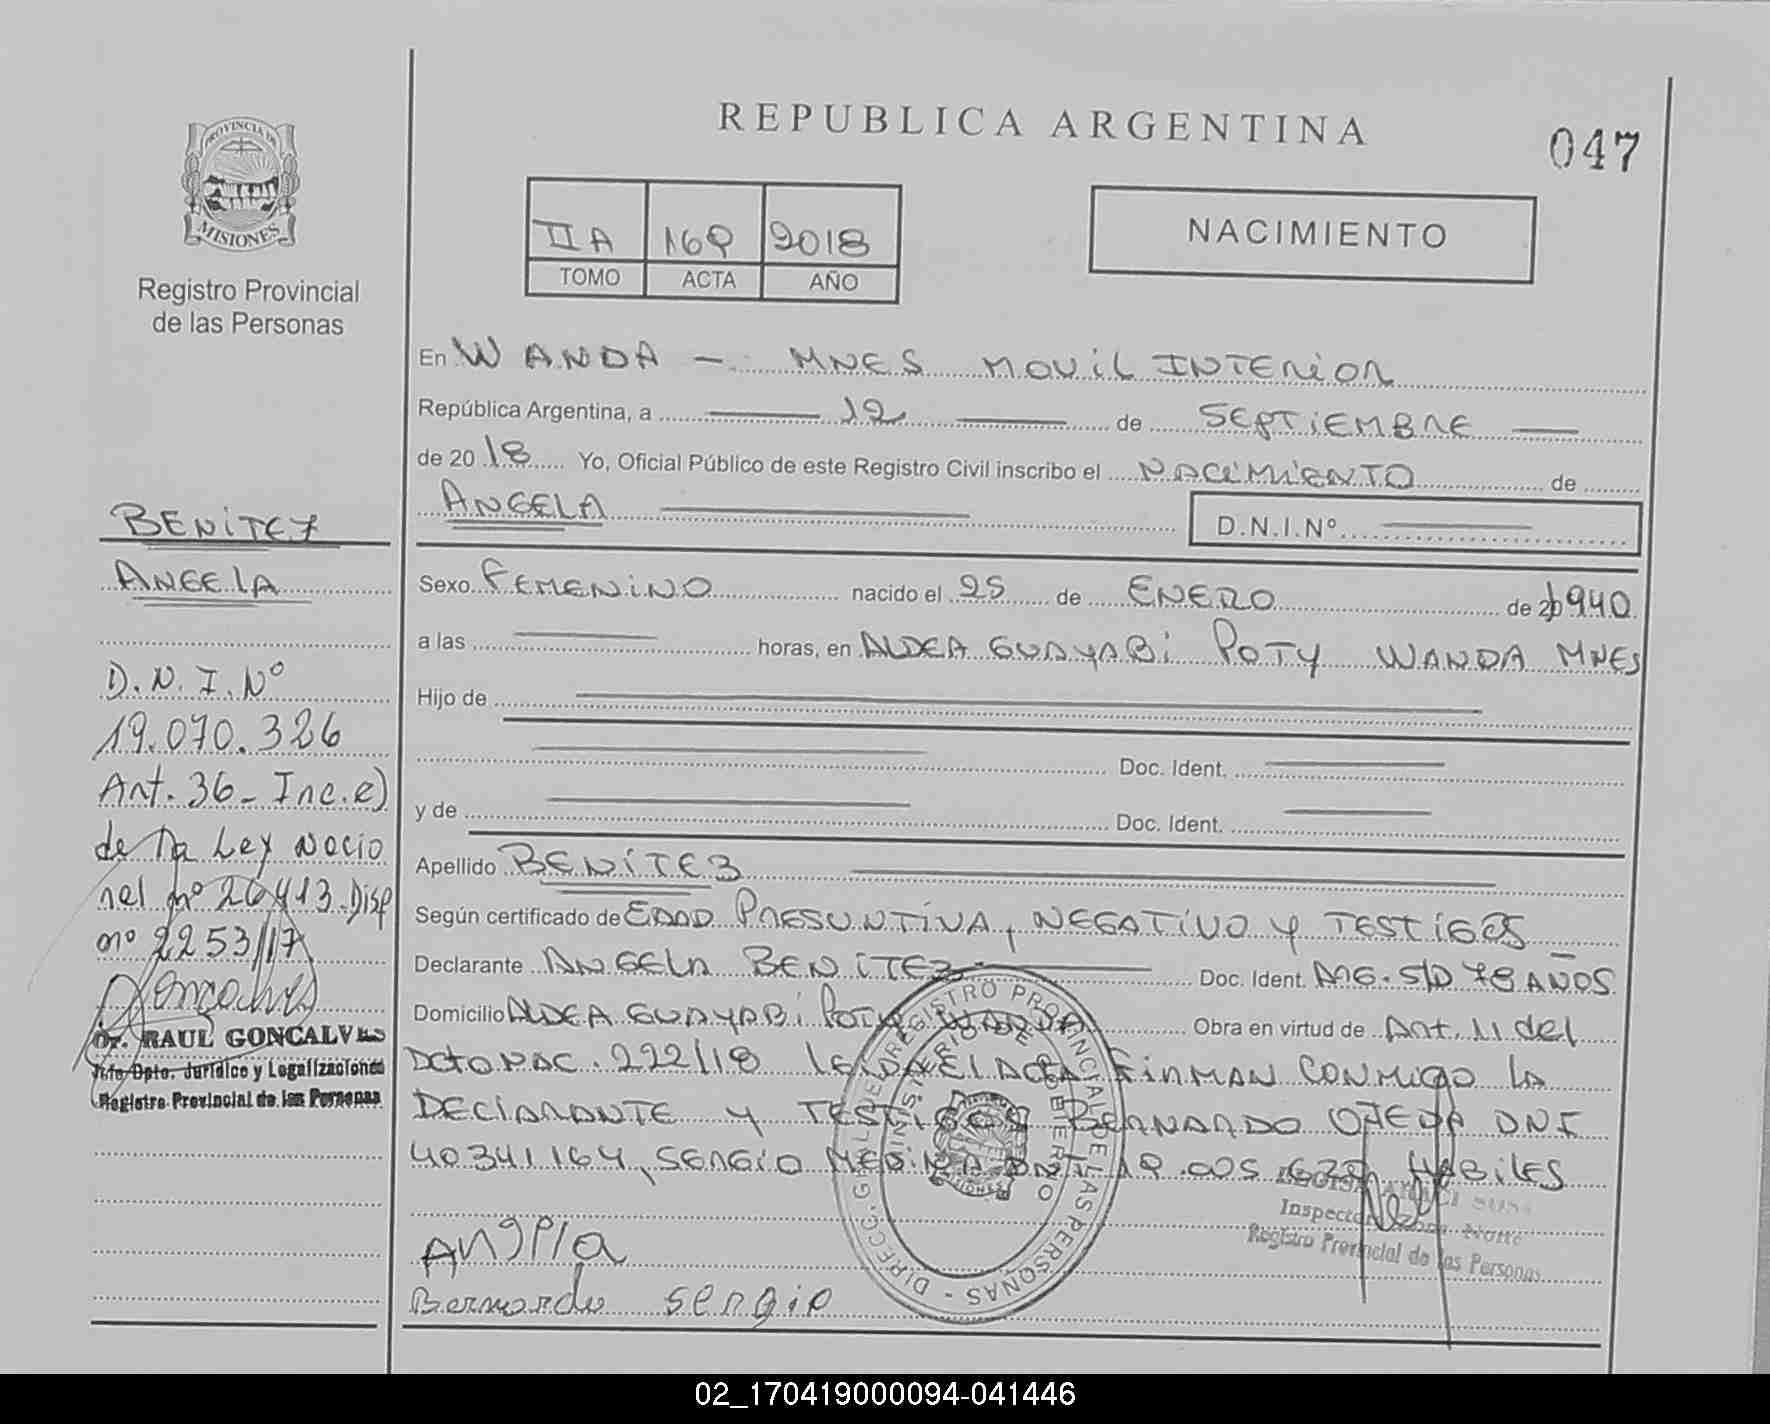 REPUBLICA ARGENTINA
047
PROVINCIA DE
MISIONES
Registro Provincial
de las Personas
IIA 169 2018
TOMO ACTA AÑO
NACIMIENTO
En WANDA - MNES MOVIL INTERIOR
República Argentina, a 12 de SEPTIEMBRE
de 20 18 Yo, Oficial Público de este Registro Civil inscribo el NACIMIENTO de
ANGELA D.N.I.Nº
Sexo FEMENINO nacido el 25 de ENERO de 1940
a las horas, en ALDEA GUAYABI POTY WANDA MNES
Hijo de
Doc. Ident.
y de Doc. Ident.
Apellido BENITEZ
Según certificado de EDAD PRESUNTIVA, NEGATIVO Y TESTIGOS
Declarante ANGELA BENITEZ Doc. Ident. ARG. S/D 78 AÑOS
Domicilio ALDEA GUAYABI POTY WANDA Obra en virtud de Art. 11 del
DCTO NAC. 222/18 LEIDA EL ACTA FIRMAN CONMIGO LA
DECLARANTE Y TESTIGOS BERNANDO OJEDA DNI
40341164, SERGIO MEDINA DNI HABILES
Angela
Bernardo Sergio
BENITEZ
ANGELA
D.N.I.Nº
19.070.326
Art. 36 - Inc. e)
de la Ley Nacio
nal nº 26413 Disp
nº 2253/17
Goncalves
Dr. RAUL GONCALVES
Jefe Dpto. Jurídico y Legalizaciones
Registro Provincial de las Personas
DIRECC. GRAL. DEL REGISTRO PROVINCIAL DE LAS PERSONAS -
MINISTERIO DE GOBIERNO
MISIONES
Inspector Zona Norte
Registro Provincial de las Personas
02_170419000094-041446